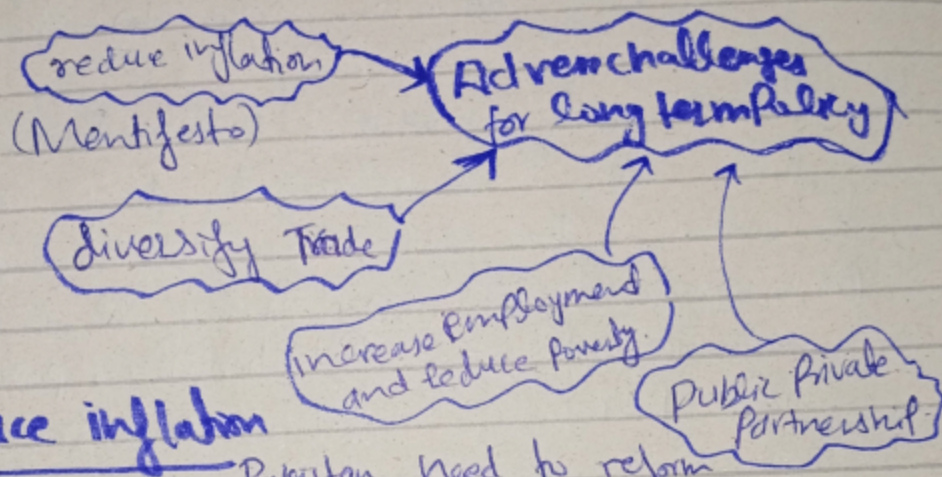 reduce inflation
(Mentifesto)
challenges
for long term Policy
diversify Trade
increase Employment
and reduce Poverty.
Public Private
Partnership
ce inflation
need to reform